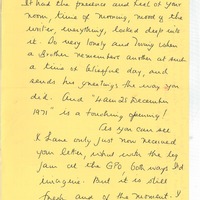 It had the presence and feel of your
room, time of morning, mood of the
writer, everything, locked deep into
it. So very lonely and loving when
a Brother remembers another at such
a time & blissful day, and
sends his greetings the way you
did. And "4am 25 December
1971" is a touching opening!
As you can see
I have only just now received
your letter, what with the log
jam at the GPO, both ways I'd
imagine. But it is still
fresh and of the moment. I